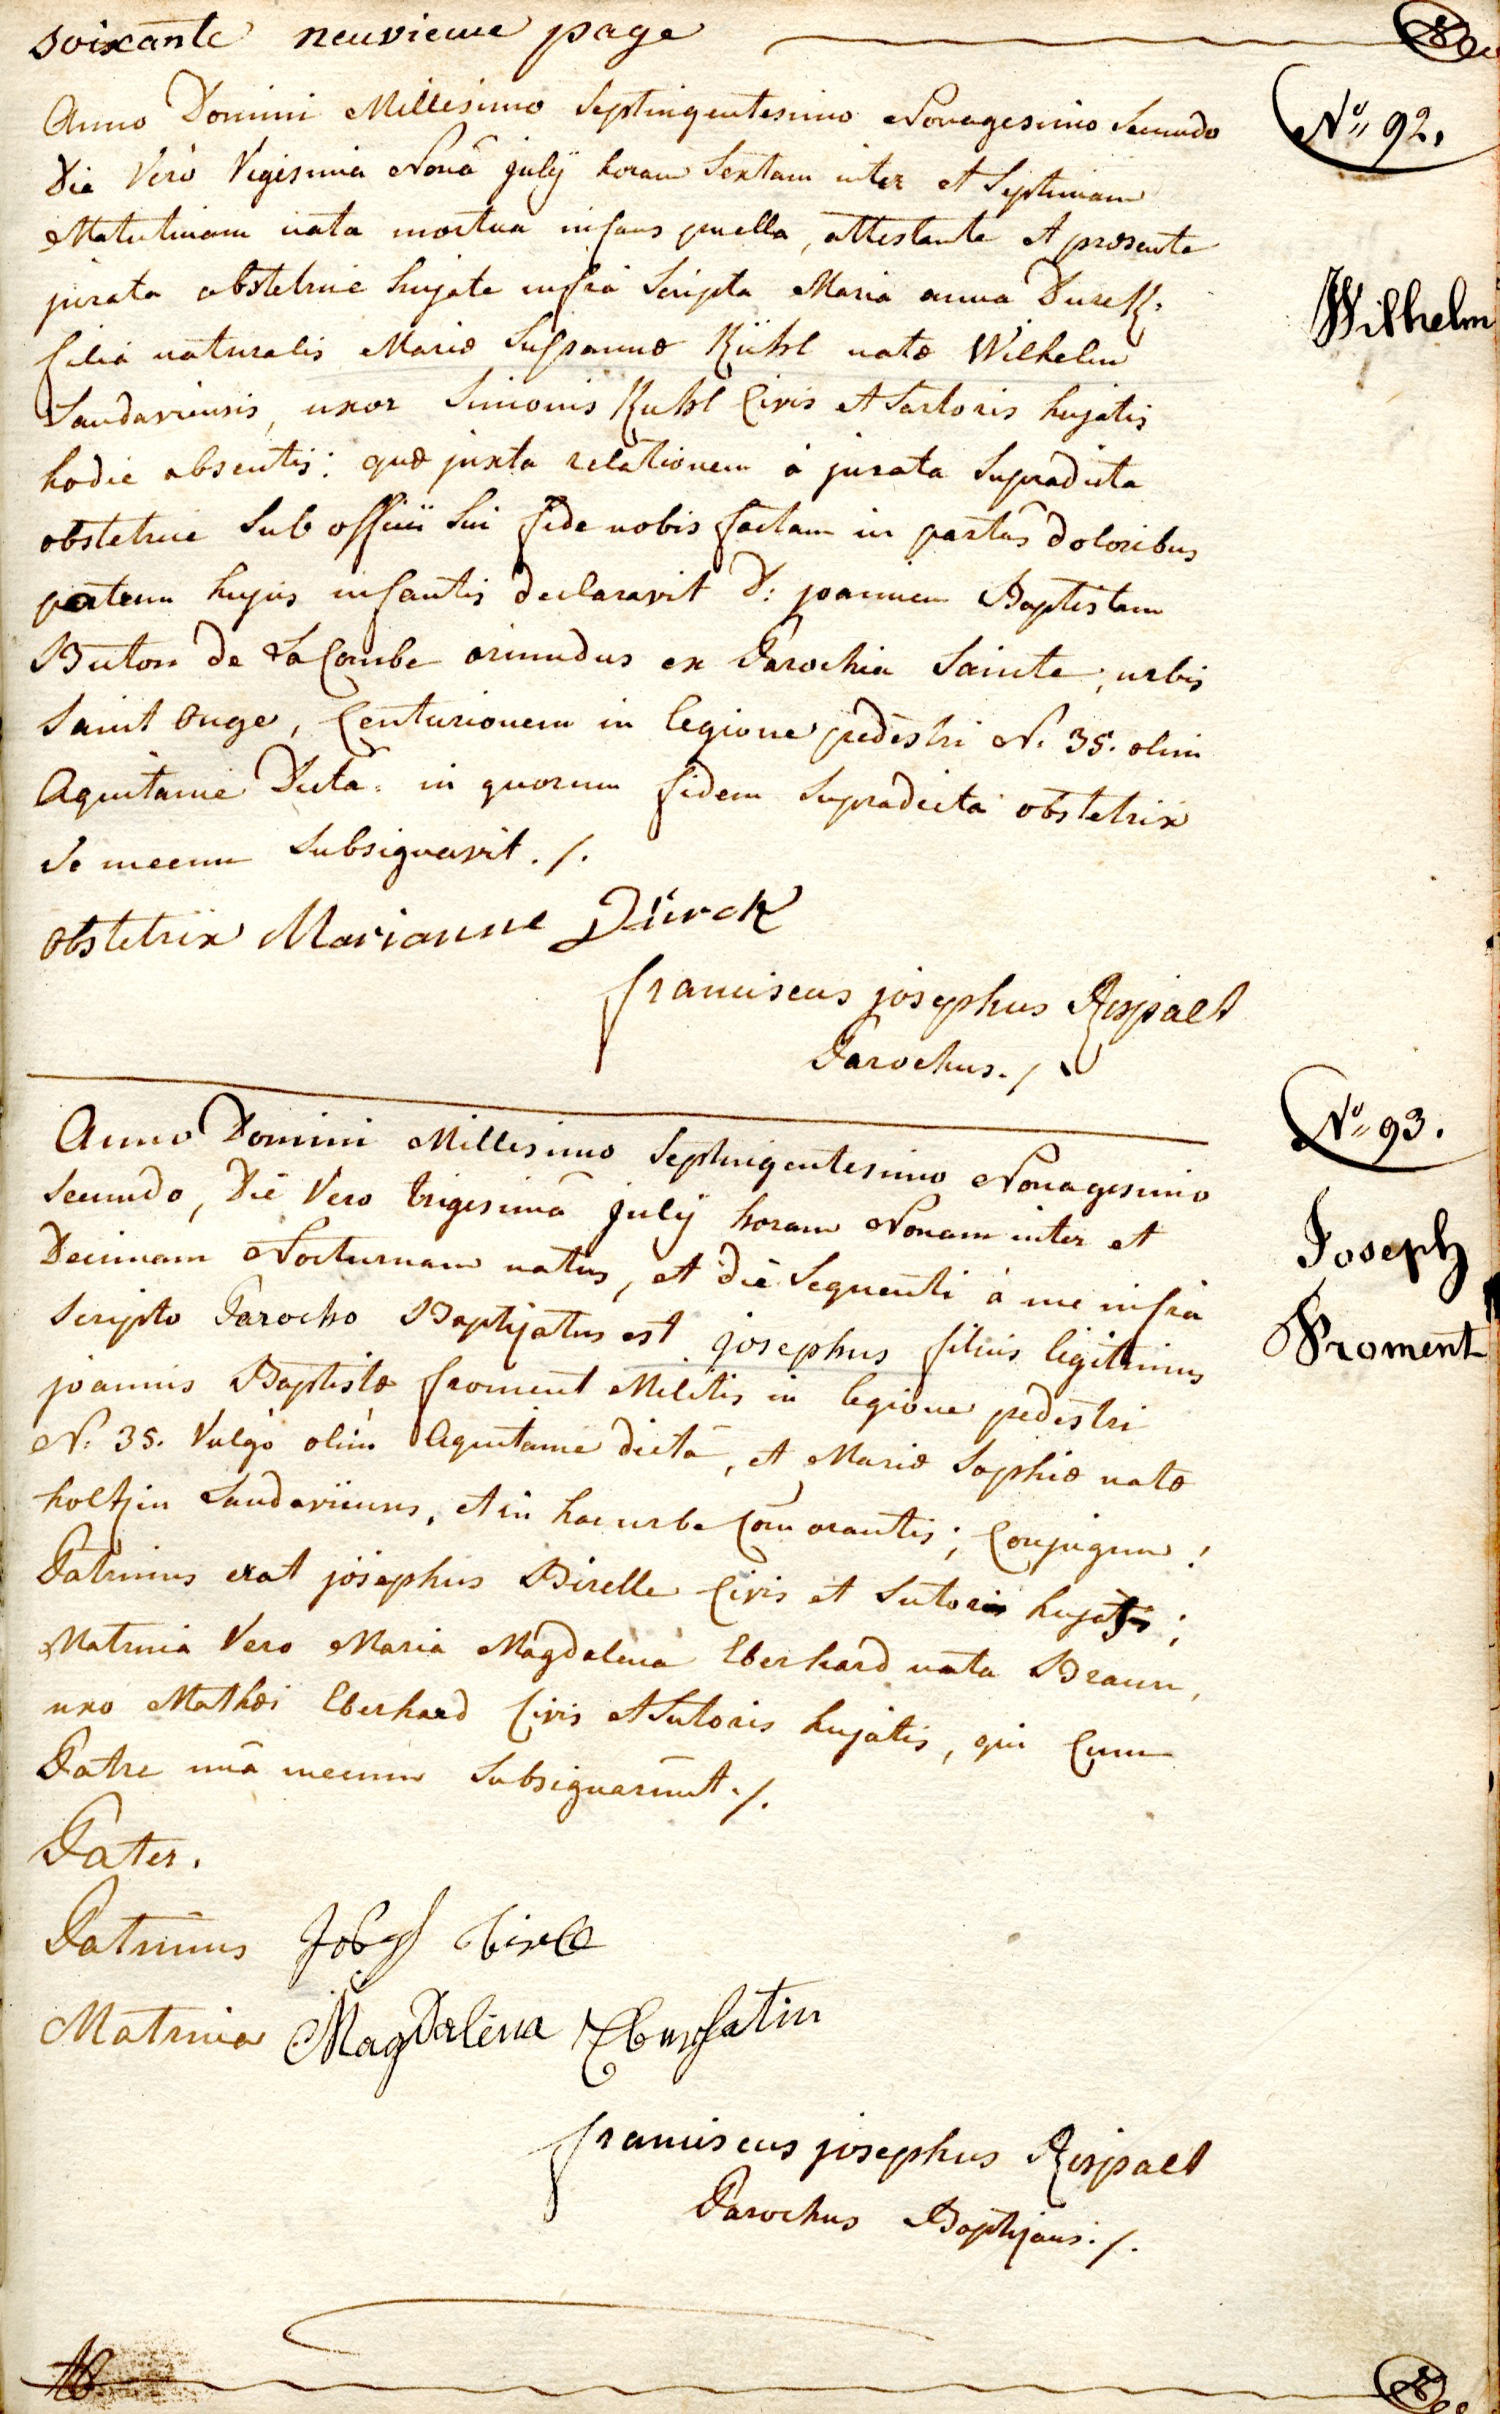 soixante neuvieme page
Anno Domini Millesimo Septingentesimo Nonagesimo Secundo
Die Vero Vigesima Nonâ julÿ horam Sextam inter et Septimam
Matutinam nata mortua infans puella, attestante et præsente
jurata obstetrice hujate infra scripta Maria anna Dureck:
filia naturalis Mariæ Susannæ Kühl natæ Wilhelm
Landaviensis, uxor Simonis Kuhl Civis et Sartoris hujatis
hodie absentis: quæ juxta relationem à jurata Supradicta
obstetrice Sub officii Sui fide nobis factam in partûs doloribus
patrem hujus infantis declaravit D: joannem Baptistam
Buton de LaCombe oriundus ex Parochia Sainte, urbis
Saint Onge, Centurionem in legione pedestri N: 35. olim
Aquitanie Dicta: in quorum fidem Supradicta obstetrix
Se mecum Subsignavit ./.
Obstetrix Marianne Dürck
franciscus josephus Rispalt
Parochus ./.
Anno Domini Millesimo Septingentesimo Nonagesimo
Secundo, Die Vero trigesimâ julÿ horam Nonam inter et
Decimam Nocturnam natus, et die Sequenti à me infra
Scripto Parocho Baptizatus est josephus filius legitimus
joannis Baptistæ froment Militis in legione pedestri
N: 35. Vulgò olim Aquitanie dictâ, et Mariæ Sophiæ natæ
holtzin Landaviensis, et in hac urbe Com̄orantis; Conjugum!
Patrinus erat josephus Birelle Civis et Sutoris hujatis;
Matrina Vero Maria Magdalena Eberhard nata Braun,
uxo Mathæi Eberhard Civis et Sutoris hujatis, qui Cum
Patre unâ mecum Subsignarunt ./.
Pater.
Patrinus
Matrina Magdalena
franciscus josephus Rispalt
Parochus Baptizans ./.
Nº 92.
Wilhelm
Nº 93.
Joseph
Froment